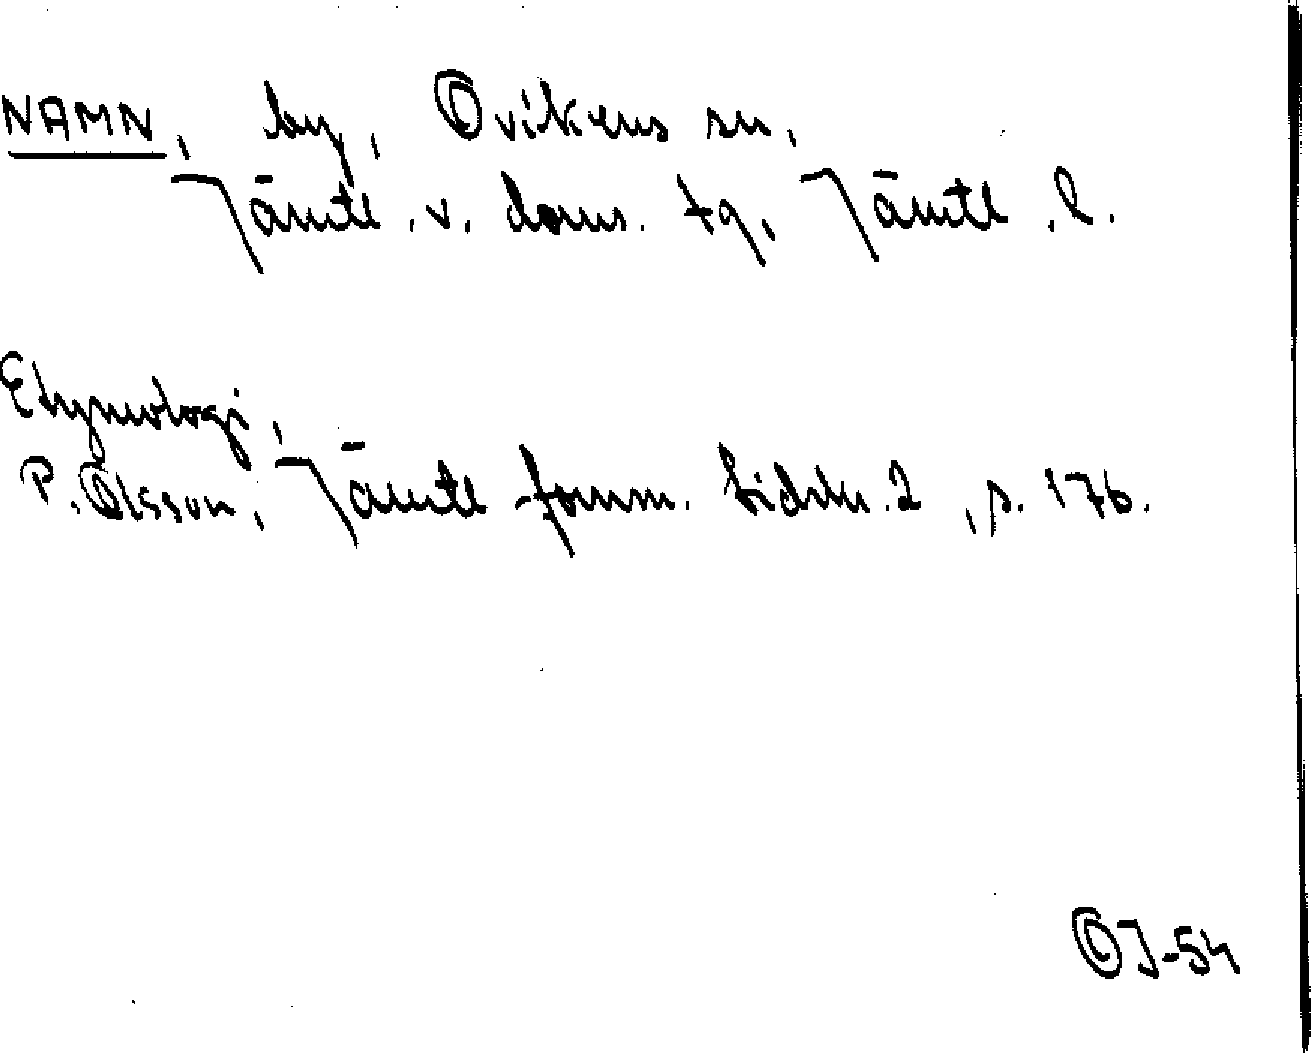 NAMN, by, Ovikens sn,
Jämtl. v. doms. tg, Jämtl. l.
Etymologi,
P. Olsson, Jämtl fornm. tidskr. 2, s. 176.
OJ-54